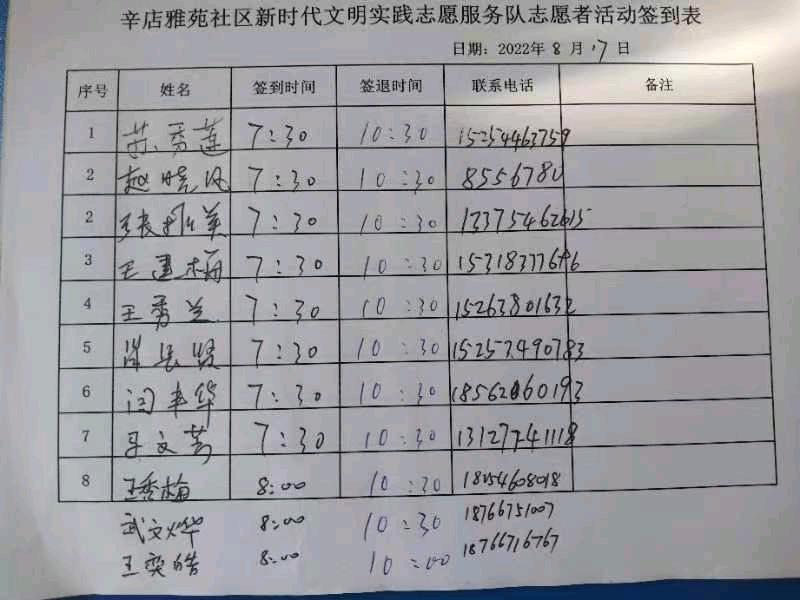 辛店雅苑社区新时代文明实践志愿服务队志愿者活动签到表
日期：2022年 8 月 17 日
序号 姓名 签到时间 签退时间 联系电话 备注
1 苏秀莲 7:30 10:30 15254463759
2 赵晓凤 7:30 10:30
2 张振英 7:30 10:30
3 王建梅 7:30 10:30
4 王秀兰 7:30 10:30 15263801632
5 贤 7:30 10:30 15257490783
6 闫丰华 7:30 10:30 18562060193
7 王文芳 7:30 10:30 13127741118
8 王秀梅 8:00 10:30 18254608018
武文烨 8:00 10:30 18766751007
王奕皓 8:00 10:00 18766716767